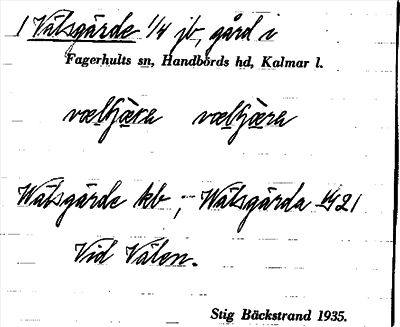 1 Välsgärde 1/4 jb, gård i
Fagerhults sn, Handbörds hd, Kalmar l.
vælʃjæra vælʃjæra
Wälsgärde kb; Wälsgärda 1921
Vid Välen.
Stig Bäckstrand 1935.